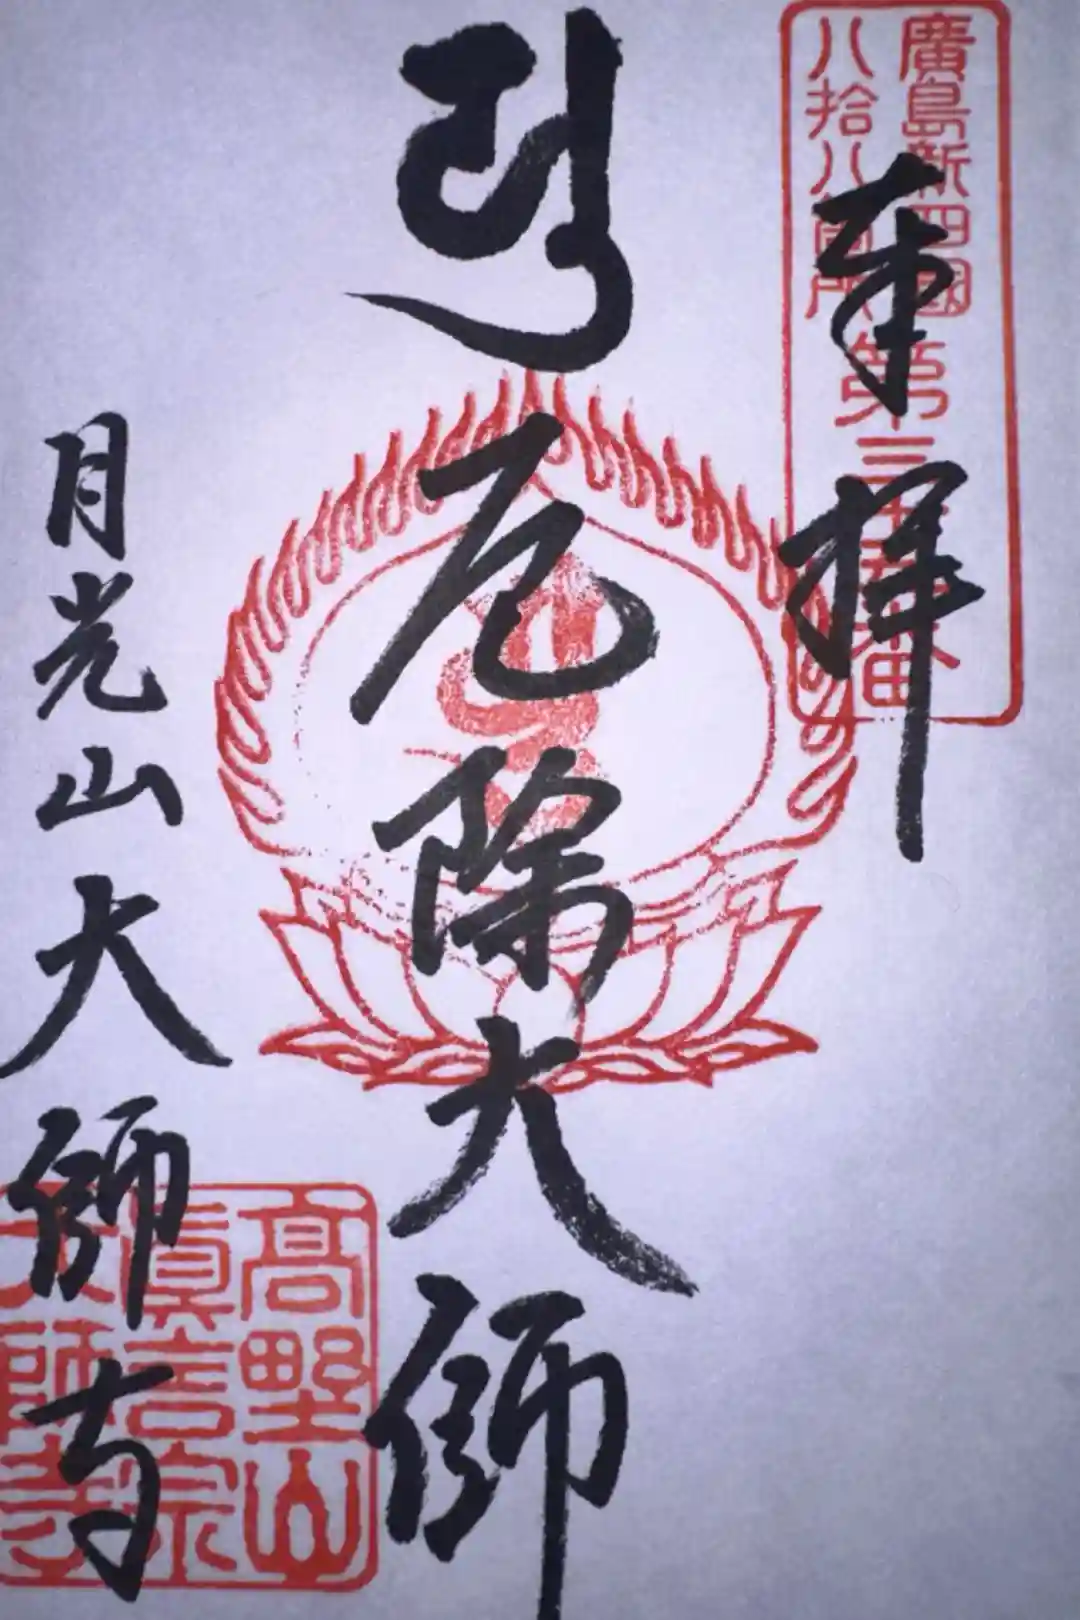 廣島新四國
八拾八箇所
第三十五番
奉拝
厄除大師
月光山大師寺
高野山
眞言宗
大師寺